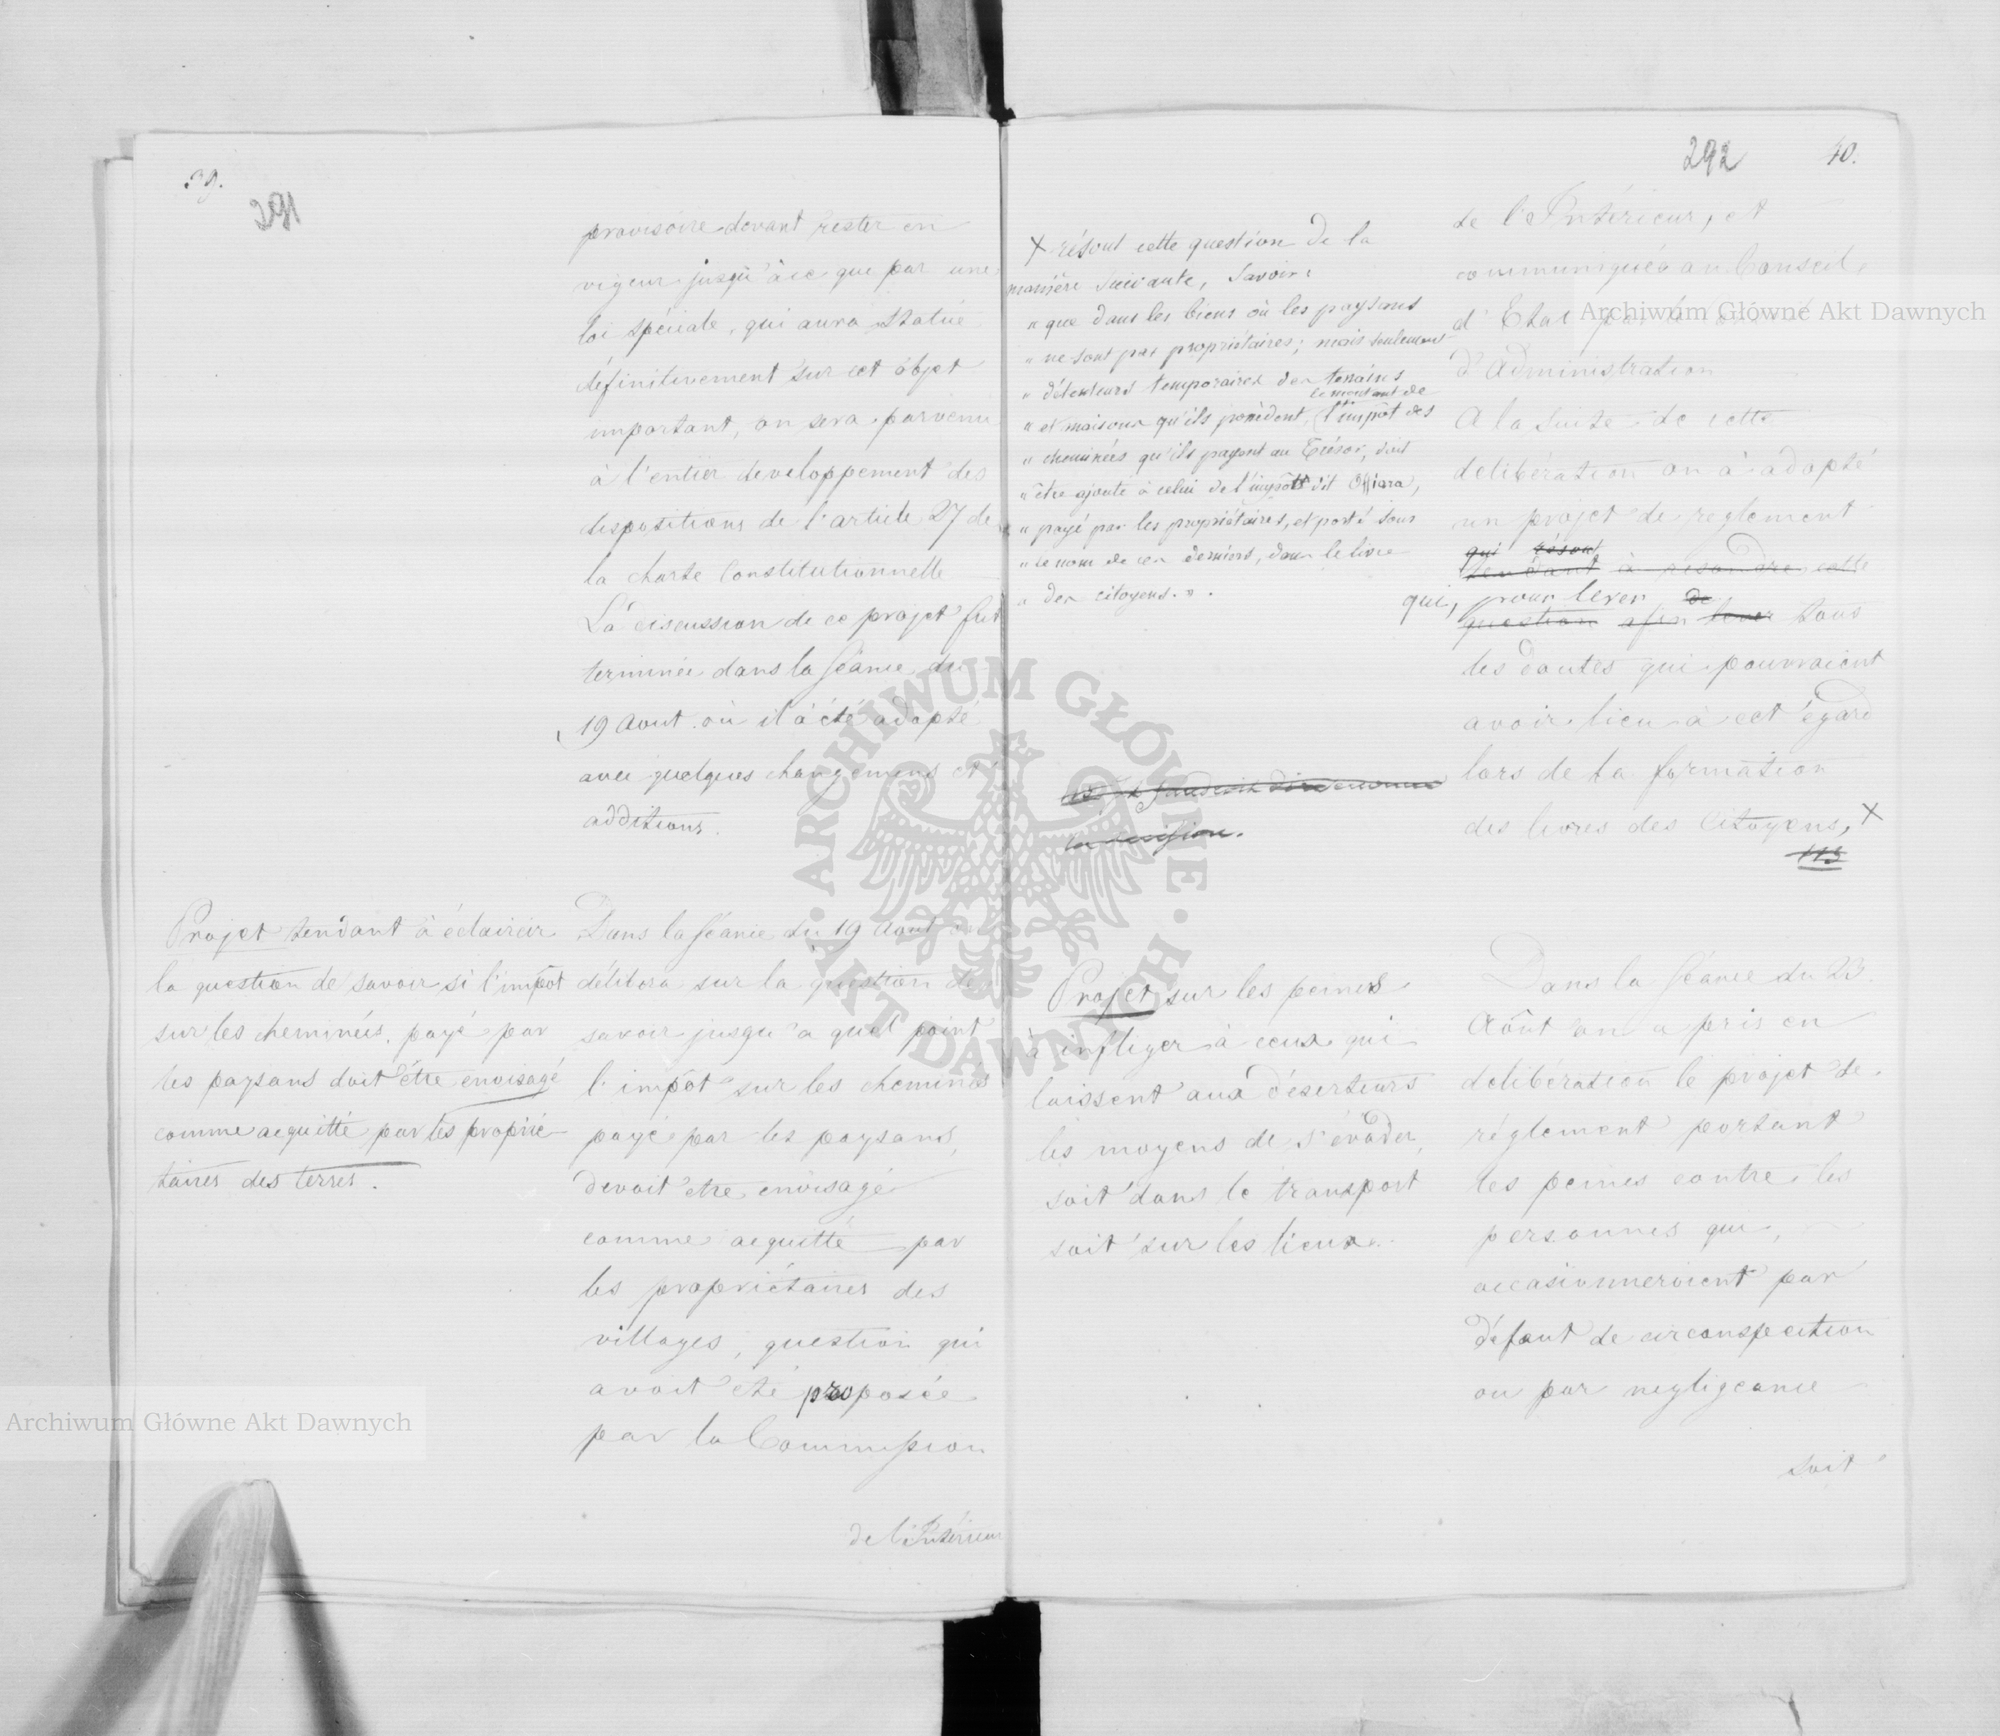 39.
291
provisoire devant rester en
vigeur jusqu'à ce que par une
loi spéciale, qui aura statué
définitivement sur cet objet
important, on sera parvenu
à l'entier developpement des
dispositions de l'article 27 de
la charte Constitutionnelle
La discussion de ce projet fut
terminée dans la Séance du
19 Aout où il a été adopté
avec quelques changemens et
additions.
Projet tendant à éclaircir
la question de savoir si l'impôt
sur les cheminées, payé par
les paysans doit être envisagé
comme acquitté par les proprié-
taires des terres.
Dans la Séance du 19 Aout on
délibera sur la question de
savoir jusqu'à quel point
l'impôt sur les cheminées
payé par les paysans,
devoit etre envisagé
comme acquitté par
les propriétaires des
villages, question qui
avoit été proposée
par la Commission
de l'Intérieur
292
40.
X résout cette question de la
manière suivante, Savoir:
" que dans les biens où les paysans
" ne sont pas propriétaires; mais seulement
" détenteurs temporaires des terrains
le montant de
" et maisons qu'ils possèdent, l'impôt des
" cheminées qu'ils payent au Trésor, doit
" être ajouté à celui de l'impôt dit Offiara,
" payé par les propriétaires, et porté sous
" le nom de ces derniers, dans le livre
" des citoyens. ".
la décision.
de l'Intérieur, et
communiquée au Conseil
d'Etat par le
d'Administration
A la suite de cette
delibération on a adopté
un projet de reglement
qui résout
tendant à resoudre cette
qui, pour lever de
question afin lever tous
les doutes qui pourraient
avoir lieu à cet égard
lors de la formation
des livres des Citoyens, X
113
Projet sur les peines
à infliger à ceux qui
laissent aux déserteurs
les moyens de s'évader,
soit dans le transport
soit sur les lieux.
Dans la Séance du 23
Août on a pris en
delibération le projet de
réglement portant
les peines contre les
personnes qui,
occasionneroient par
défaut de circonspection
ou par negligeance
soit
Archiwum Główne Akt Dawnych
Archiwum Główne Akt Dawnych
ARCHIWUM GŁÓWNE AKT DAWNYCH